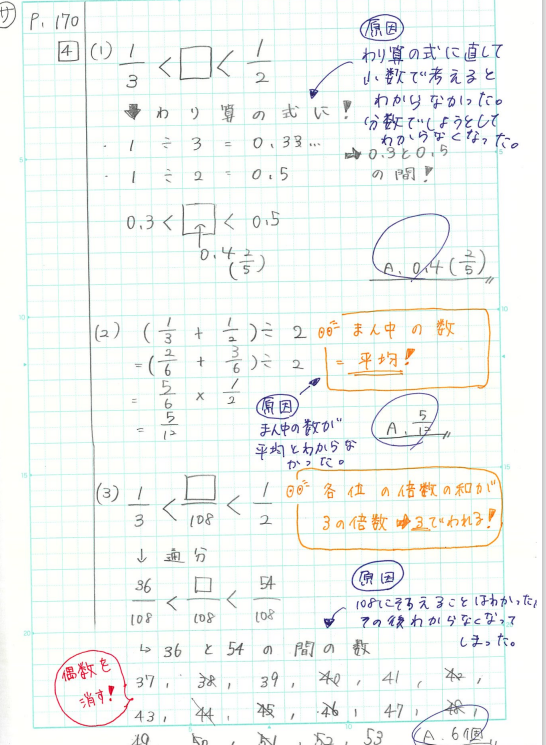 サ P. 170
4 (1) 1/3 < □ < 1/2
原因
わり算の式に直して
小数で考えると
わからなかった。
分数でしようとして
わからなくなった。
↓ わり算の式に!
・ 1 ÷ 3 = 0.33...
・ 1 ÷ 2 = 0.5
⇒ 0.3と0.5
の間!
0.3 < □ < 0.5
0.4 (2/5)
A. 0.4 (2/5)
(2) (1/3 + 1/2) ÷ 2
= (2/6 + 3/6) ÷ 2
= 5/6 × 1/2
= 5/12
まん中の数
= 平均!
原因
まん中の数が
平均とわからな
かった。
A. 5/12
(3) 1/3 < □/108 < 1/2
各位の倍数の和が
3の倍数 ➡ 3でわれる!
↓ 通分
36/108 < □/108 < 54/108
原因
108にそろえることはわかった,
その後わからなくなって
しまった。
↳ 36 と 54 の 間の数
偶数を
消す!
37, 38, 39, 40, 41, 42,
43, 44, 45, 46, 47, 48,
49 50 51 52 53
A. 6個